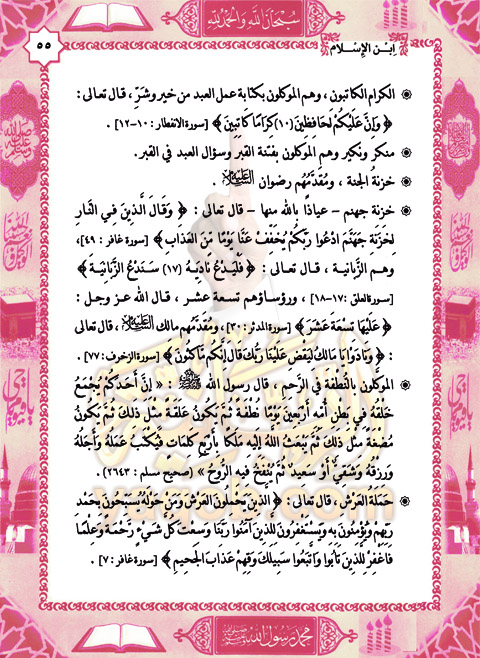 سُبْحَانَ اللهِ وَالْحَمْدُ لِلهِ
٥٥
ابْنُ الإِسْلَام
الكرام الكاتبون ، وهم الموكلون بكتابة عمل العبد من خير وشرّ ، قال تعالى :
﴿ وَإِنَّ عَلَيْكُمْ لَحَافِظِينَ (١٠) كِرَامًا كَاتِبِينَ ﴾ [سورة الانفطار : ١٠-١٢] .
منكر ونكير وهم الموكلون بفتنة القبر وسؤال العبد في القبر.
خزنةُ الجنة ، ومُقدَّمُهُم رضوان عليه السلام .
خزنة جهنم – عياذاً بالله منها – قال تعالى : ﴿ وَقَالَ الَّذِينَ فِي النَّارِ
لِخَزَنَةِ جَهَنَّمَ ادْعُوا رَبَّكُمْ يُخَفِّفْ عَنَّا يَوْمًا مِّنَ الْعَذَابِ ﴾ [سورة غافر : ٤٩]،
وهم الزَّبانية ، قال تعالى : ﴿ فَلْيَدْعُ نَادِيَهُ (١٧) سَنَدْعُ الزَّبَانِيَةَ ﴾
[سورة العلق :١٧-١٨] ، ورؤساؤهم تسعة عشر ، قال الله عز وجل :
﴿ عَلَيْهَا تِسْعَةَ عَشَرَ ﴾ [سورة المدثر : ٣٠] ، ومُقدَّمُهم مالك عليه السلام، قال تعالى
: ﴿ وَنَادَوْا يَا مَالِكُ لِيَقْضِ عَلَيْنَا رَبُّكَ قَالَ إِنَّكُم مَّاكِثُونَ ﴾ [سورة الزخرف : ٧٧] .
الموكَّلون بالنُّطفة في الرَّحِم ، قال رسول الله ﷺ : « إِنَّ أَحَدَكُمْ يُجْمَعُ
خَلْقُهُ فِي بَطْنِ أُمِّهِ أَرْبَعِينَ يَوْمًا نُطْفَةً ثُمَّ يَكُونُ عَلَقَةً مِثْلَ ذَلِكَ ثُمَّ يَكُونُ
مُضْغَةً مِثْلَ ذَلِكَ ثُمَّ يَبْعَثُ اللهُ إِلَيْهِ مَلَكًا بِأَرْبَعِ كَلِمَاتٍ فَيُكْتَبُ عَمَلُهُ وَأَجَلُهُ
وَرِزْقُهُ وَشَقِيٌّ أَوْ سَعِيدٌ ثُمَّ يُنْفَخُ فِيهِ الرُّوحُ » (صحيح مسلم : ٢٦٤٣) .
حَمَلَةُ العَرْشِ ، قال تعالى : ﴿ الَّذِينَ يَحْمِلُونَ الْعَرْشَ وَمَنْ حَوْلَهُ يُسَبِّحُونَ بِحَمْدِ
رَبِّهِمْ وَيُؤْمِنُونَ بِهِ وَيَسْتَغْفِرُونَ لِلَّذِينَ آمَنُوا رَبَّنَا وَسِعْتَ كُلَّ شَيْءٍ رَّحْمَةً وَعِلْمًا
فَاغْفِرْ لِلَّذِينَ تَابُوا وَاتَّبَعُوا سَبِيلَكَ وَقِهِمْ عَذَابَ الْجَحِيمِ ﴾ [سورة غافر : ٧] .
محمد رسول الله ﷺ